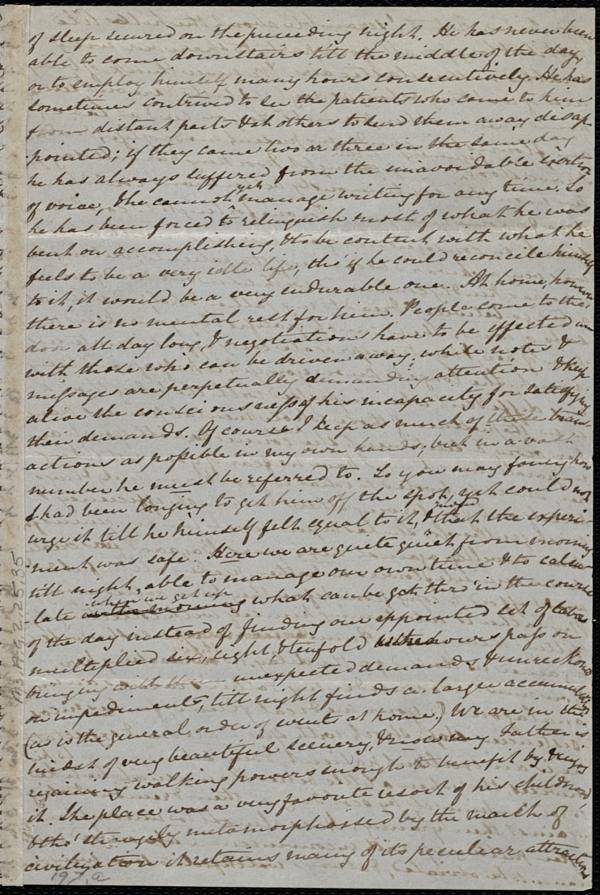 of sleep secured on the preceeding night. He has never been
able to come downstairs till the middle of the day,
or to employ himself many hours consecutively. He has
sometimes contrived to see the patients who came to him
from distant parts & at others to send them away disap-
-pointed; if they came two or three in the same day
he has always suffered from the unavoidable exertion
of voice, & he cannot yet manage writing for any time. So
he has been forced to relinquish most of what he was
bent on accomplishing, & to be content with what he
feels to be a very idle life, tho' if he could reconcile himself
to it, it would be a very endurable one. At home, however
there is no mental rest for him. People come to the
door all day long, & negotiations have to be effected
with those who can be driven away, while notes &
messages are perpetually demanding attention & keep
alive the consciousness of his incapacity for satisfying
their demands. Of course I keep as much of these trans-
actions as possible in my own hands, but in a vast
number he must be referred to. So you may fancy how
I had been longing to get him off the spot, yet could not
urge it till he himself felt equal to it, & that the experi-
-ment was safe. Here we are quite quiet from morning
till night, able to manage our own time & to calcu-
-late when we get up what can be got thro' in the course
of the day instead of finding our appointed set of tasks
multiplied six, eight, & tenfold as the hours pass on
bringing with them unexpected demands & unreckoned
on impediments, till night finds a large accumulation
(as is the general order of event at home.) We are in the
midst of very beautiful scenery, & now my Father is
regaining walking powers enough to benefit by & enjoy
it. The place was a very favorite resort of his childhood
& tho' strangely metamorphosed by the march of
civilization it retains many of its peculiar attractions
Ms.A.9.2.25.85
197,a